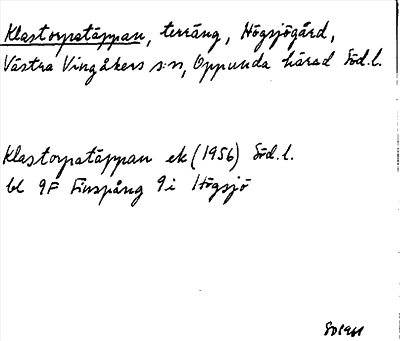 Klastorpatäppan, terräng, Högsjögård,
Västra Vingåkers s:n, Oppunda härad Söd.l.
Klastorpatäppan ek (1956) Söd.l.
bl 9F Finspång 9i Högsjö